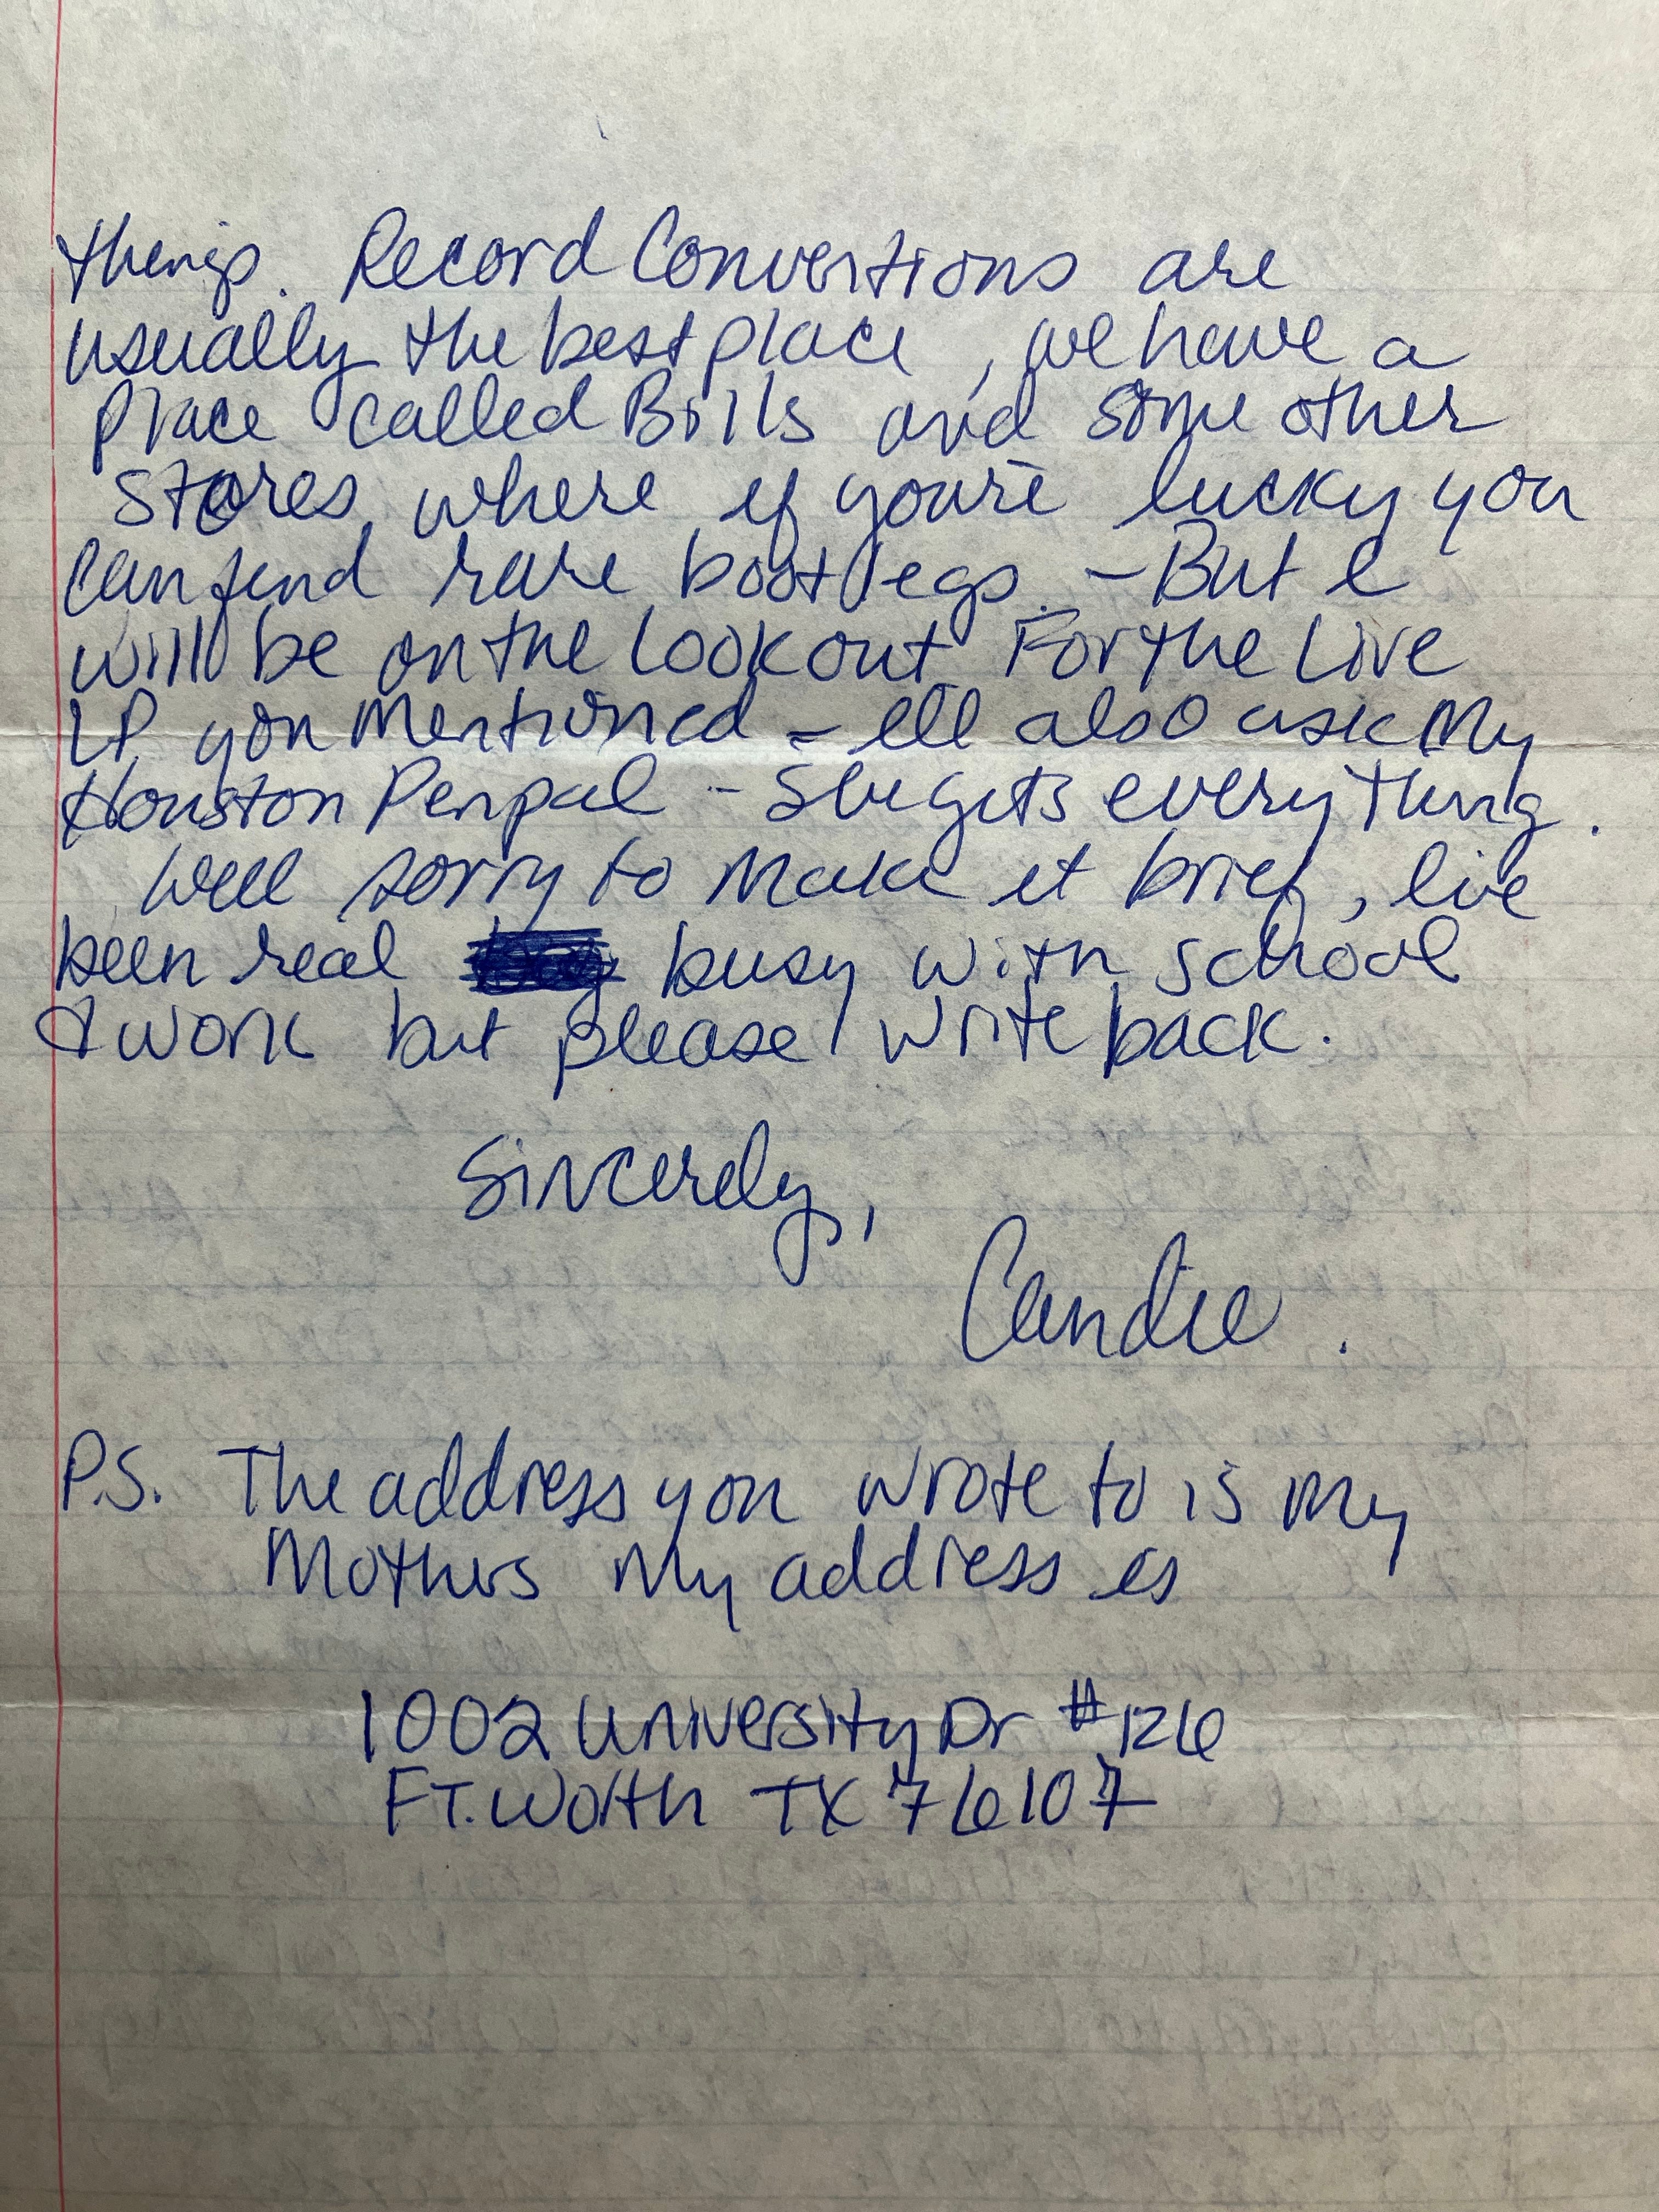 things. Record Conventions are
usually the best place, we have a
place called Bills and some other
stores where if you're lucky you
can find rare bootlegs. - But I
will be on the lookout For the Live
LP you mentioned - I'll also ask My
Houston Penpal - She gets everything.
Well sorry to make it brief, I've
been real busy with school
& work but please write back.
Sincerely,
Candie.
P.S. The address you wrote to is my
Mothers My address is
1002 University Dr #126
FT. Worth TX 76107